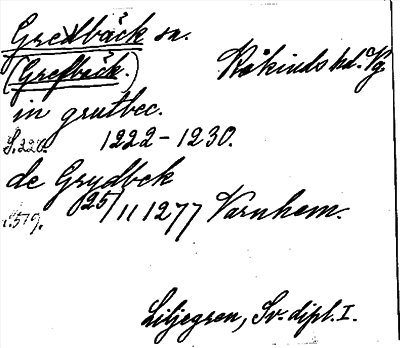 Gredbäck sn.
(Grefbäck.) Kåkinds hd. Vg.
in grutbec.
S. 220. 1222-1230.
de Grydbek
S. 579. 25/11 1277 Varnhem.
Liljegren, Sv. dipl. I.